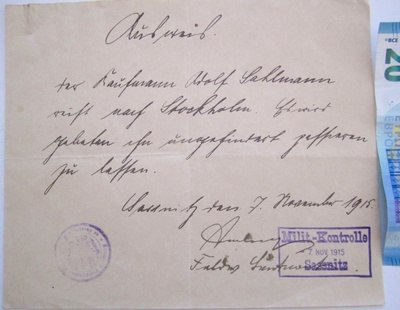 Ausweis.
der Kaufmann Adolf Sahlmann
reist nach Stockholm. Es wird
gebeten ihn ungehindert passieren
zu lassen.
Sassnitz den 7. November 1915.
Milit-Kontrolle
7. NOV. 1915
Sassnitz
20